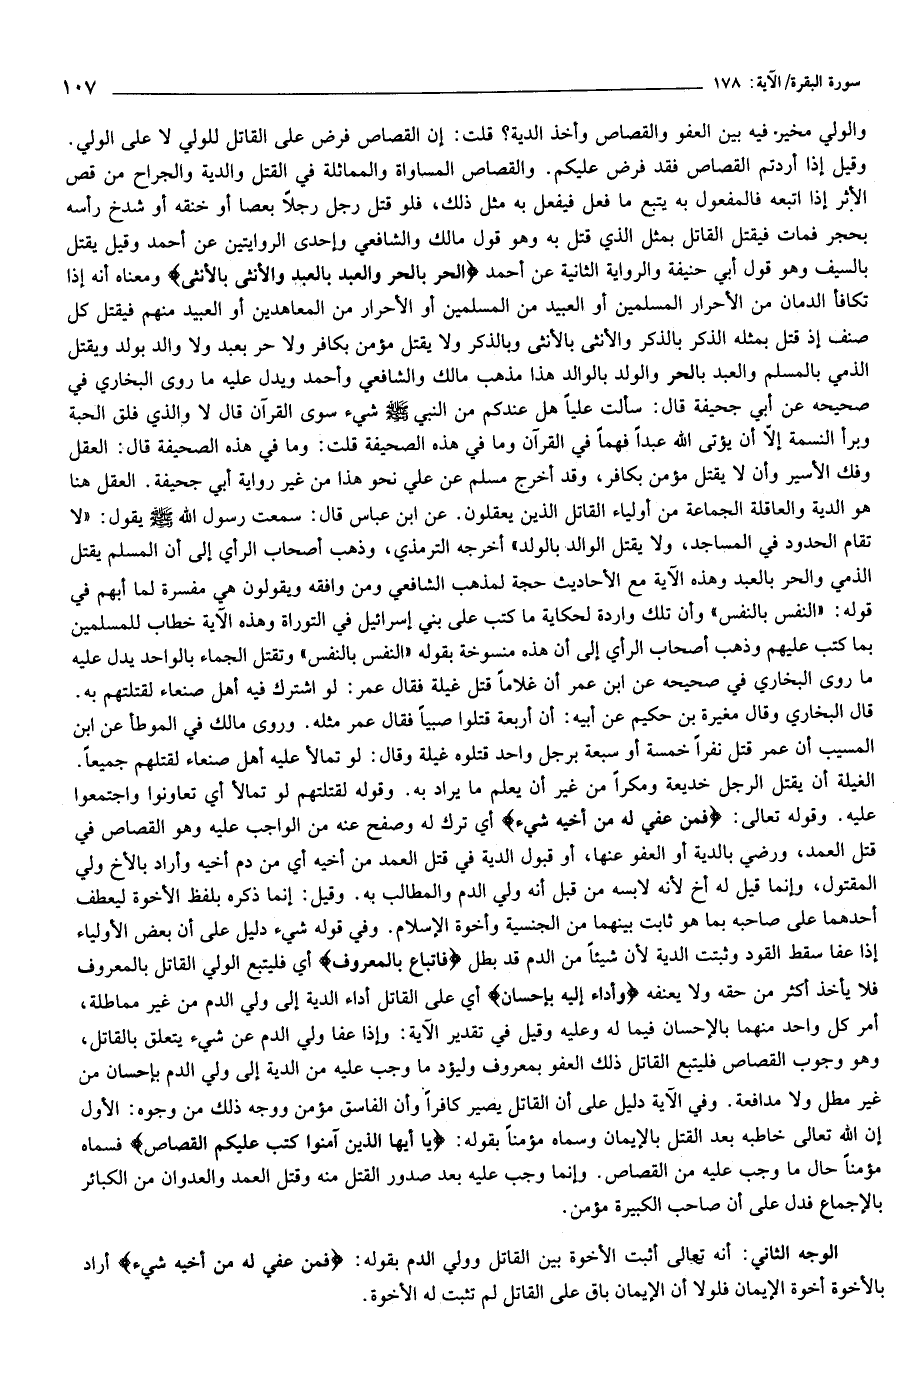 سورة البقرة/ الآية: ١٧٨ ١٠٧
والولي مخير فيه بين العفو والقصاص وأخذ الدية؟ قلت: إن القصاص فرض على القاتل للولي لا على الولي.
وقيل إذا أردتم القصاص فقد فرض عليكم. والقصاص المساواة والمماثلة في القتل والدية والجراح من قص
الأثر إذا اتبعه فالمفعول به يتبع ما فعل فيفعل به مثل ذلك، فلو قتل رجل رجلاً بعصا أو خنقه أو شدخ رأسه
بحجر فمات فيقتل القاتل بمثل الذي قتل به وهو قول مالك والشافعي وإحدى الروايتين عن أحمد وقيل يقتل
بالسيف وهو قول أبي حنيفة والرواية الثانية عن أحمد ﴿الحر بالحر والعبد بالعبد والأنثى بالأنثى﴾ ومعناه أنه إذا
تكافأ الدمان من الأحرار المسلمين أو العبيد من المسلمين أو الأحرار من المعاهدين أو العبيد منهم فيقتل كل
صنف إذ قتل بمثله الذكر بالذكر والأنثى بالأنثى وبالذكر ولا يقتل مؤمن بكافر ولا حر بعبد ولا والد بولد ويقتل
الذمي بالمسلم والعبد بالحر والولد بالوالد هذا مذهب مالك والشافعي وأحمد ويدل عليه ما روى البخاري في
صحيحه عن أبي جحيفة قال: سألت علياً هل عندكم من النبي ﷺ شيء سوى القرآن قال لا والذي فلق الحبة
وبرأ النسمة إلاّ أن يؤتى الله عبداً فهماً في القرآن وما في هذه الصحيفة قلت: وما في هذه الصحيفة قال: العقل
وفك الأسير وأن لا يقتل مؤمن بكافر، وقد أخرج مسلم عن علي نحو هذا من غير رواية أبي جحيفة. العقل هنا
هو الدية والعاقلة الجماعة من أولياء القاتل الذين يعقلون. عن ابن عباس قال: سمعت رسول الله ﷺ يقول: «لا
تقام الحدود في المساجد، ولا يقتل الوالد بالولد» أخرجه الترمذي، وذهب أصحاب الرأي إلى أن المسلم يقتل
الذمي والحر بالعبد وهذه الآية مع الأحاديث حجة لمذهب الشافعي ومن وافقه ويقولون هي مفسرة لما أبهم في
قوله: «النفس بالنفس» وأن تلك واردة لحكاية ما كتب على بني إسرائيل في التوراة وهذه الآية خطاب للمسلمين
بما كتب عليهم وذهب أصحاب الرأي إلى أن هذه منسوخة بقوله «النفس بالنفس» وتقتل الجماء بالواحد يدل عليه
ما روى البخاري في صحيحه عن ابن عمر أن غلاماً قتل غيلة فقال عمر: لو اشترك فيه أهل صنعاء لقتلتهم به.
قال البخاري وقال مغيرة بن حكيم عن أبيه: أن أربعة قتلوا صبياً فقال عمر مثله. وروى مالك في الموطأ عن ابن
المسيب أن عمر قتل نفراً خمسة أو سبعة برجل واحد قتلوه غيلة وقال: لو تمالأ عليه أهل صنعاء لقتلهم جميعاً.
الغيلة أن يقتل الرجل خديعة ومكراً من غير أن يعلم ما يراد به. وقوله لقتلتهم لو تمالأ أي تعاونوا واجتمعوا
عليه. وقوله تعالى: ﴿فمن عفي له من أخيه شيء﴾ أي ترك له وصفح عنه من الواجب عليه وهو القصاص في
قتل العمد، ورضي بالدية أو العفو عنها، أو قبول الدية في قتل العمد من أخيه أي من دم أخيه وأراد بالأخ ولي
المقتول، وإنما قيل له أخ لأنه لابسه من قبل أنه ولي الدم والمطالب به. وقيل: إنما ذكره بلفظ الأخوة ليعطف
أحدهما على صاحبه بما هو ثابت بينهما من الجنسية وأخوة الإسلام. وفي قوله شيء دليل على أن بعض الأولياء
إذا عفا سقط القود وثبتت الدية لأن شيئاً من الدم قد بطل ﴿فاتباع بالمعروف﴾ أي فليتبع الولي القاتل بالمعروف
فلا يأخذ أكثر من حقه ولا يعنفه ﴿وأداء إليه بإحسان﴾ أي على القاتل أداء الدية إلى ولي الدم من غير مماطلة،
أمر كل واحد منهما بالإحسان فيما له وعليه وقيل في تقدير الآية: وإذا عفا ولي الدم عن شيء يتعلق بالقاتل،
وهو وجوب القصاص فليتبع القاتل ذلك العفو بمعروف وليؤد ما وجب عليه من الدية إلى ولي الدم بإحسان من
غير مطل ولا مدافعة. وفي الآية دليل على أن القاتل يصير كافراً وأن الفاسق مؤمن ووجه ذلك من وجوه: الأول
إن الله تعالى خاطبه بعد القتل بالإيمان وسماه مؤمناً بقوله: ﴿يا أيها الذين آمنوا كتب عليكم القصاص﴾ فسماه
مؤمناً حال ما وجب عليه من القصاص. وإنما وجب عليه بعد صدور القتل منه وقتل العمد والعدوان من الكبائر
بالإجماع فدل على أن صاحب الكبيرة مؤمن.
الوجه الثاني: أنه تعالى أثبت الأخوة بين القاتل وولي الدم بقوله: ﴿فمن عفي له من أخيه شيء﴾ أراد
بالأخوة أخوة الإيمان فلولا أن الإيمان باق على القاتل لم تثبت له الأخوة.